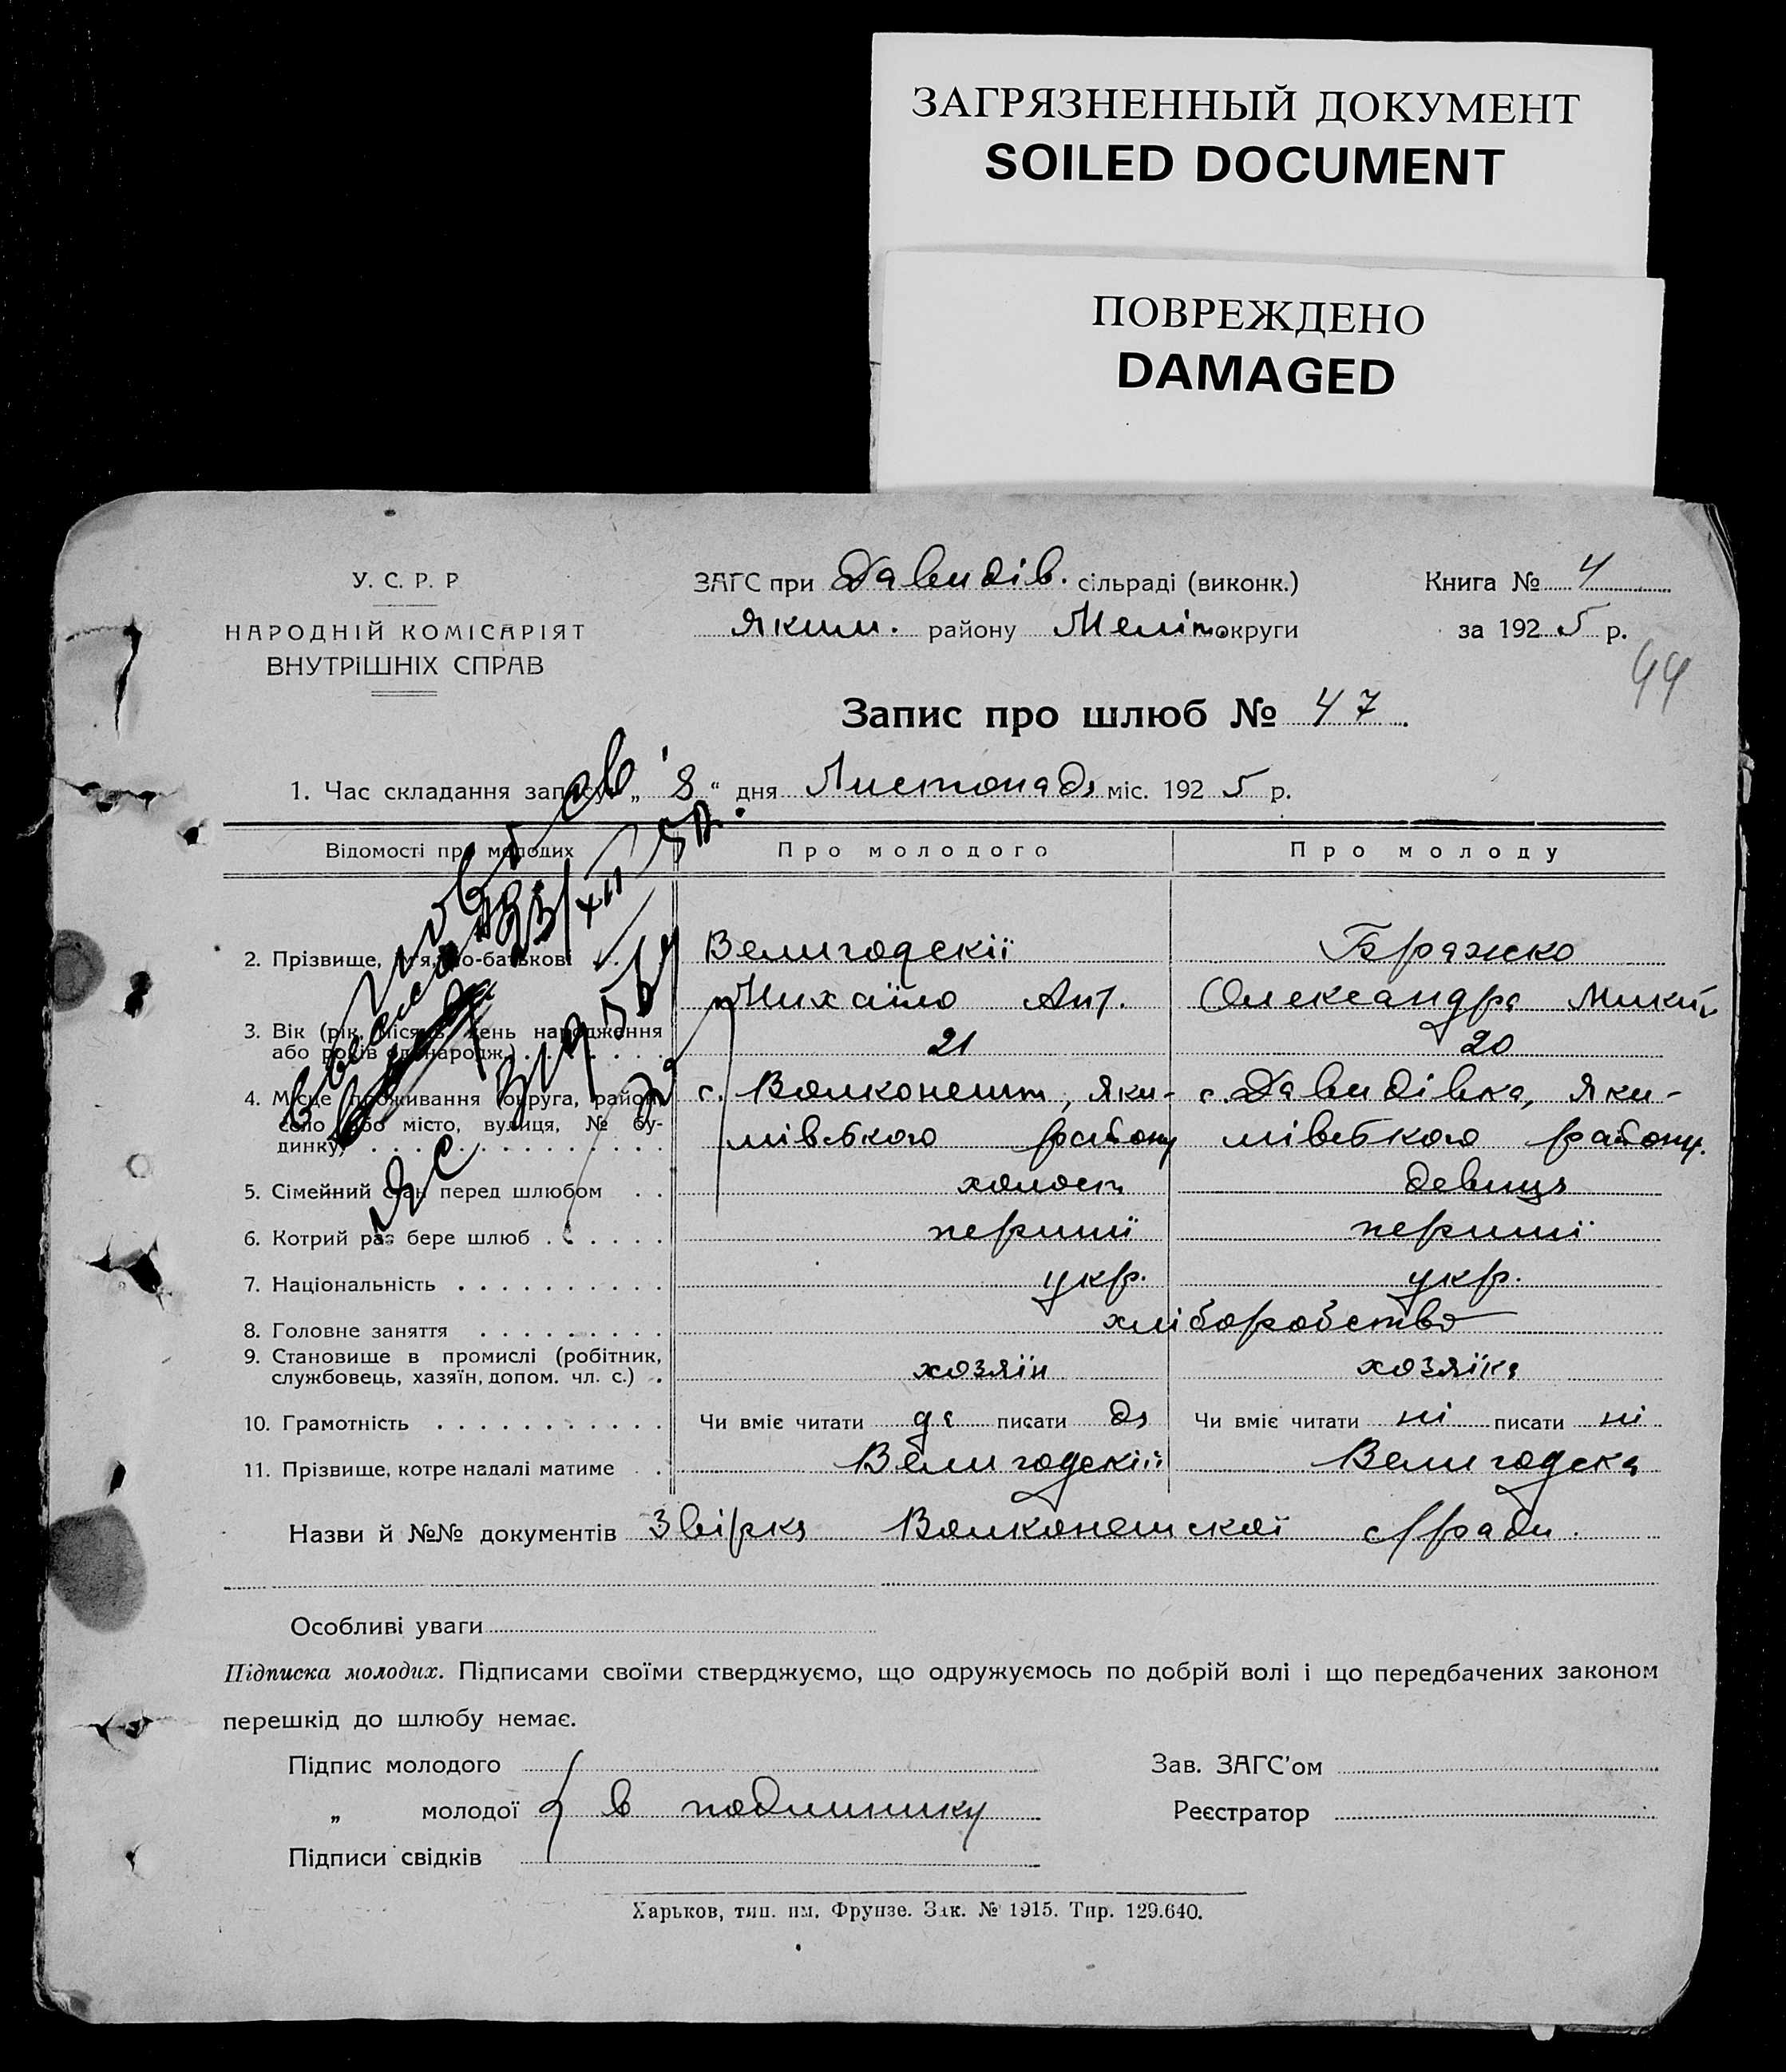 ЗАГРЯЗНЕННЫЙ ДОКУМЕНТ
SOILED DOCUMENT
ПОВРЕЖДЕНО
DAMAGED
У. С. Р. Р
НАРОДНІЙ КОМІСАРІЯТ
ВНУТРІШНІХ СПРАВ
ЗАГС при Давидів. сільраді (виконк.)
Яким. району Меліт. округи
Книга № 4
за 1925 р.
44
Запис про шлюб № 47.
1. Час складання запису „ 8 “ дня Листопада міс. 1925 р.
Відомості про молодих
Про молодого
Про молоду
2. Прізвище, ім'я, по-батькові
Велигодскії
Бражко
Михаіло Ант.
Олександра Микит.
3. Вік (рік, місяць, день народження
або років од народж.)
21
20
4. Місце проживання (округа, район,
село або місто, вулиця, № бу-
динку)
с. Волконешт, Яки-
мівського району
с. Давидівка, Яки-
мівського району.
5. Сімейний стан перед шлюбом
холост
девиця
6. Котрий раз бере шлюб
первиї
первиї
7. Національність
укр.
укр.
8. Головне заняття
хліборобство
9. Становище в промислі (робітник,
службовець, хазяїн, допом. чл. с.)
хозяїн
хозяїка
10. Грамотність
Чи вміє читати да писати да
Чи вміє читати ні писати ні
11. Прізвище, котре надалі матиме
Велигодскії
Велигодска
Назви й №№ документів Звірка Волконешскої с/ради.
Особливі уваги
Підписка молодих. Підписами своїми стверджуємо, що одружуємось по добрій волі і що передбачених законом
перешкід до шлюбу немає.
Підпис молодого
„ молодої в подлинику
Підписи свідків
Зав. ЗАГС'ом
Реєстратор
Харьков, тип. им. Фрунзе. Зак. № 1915. Тир. 129.640.